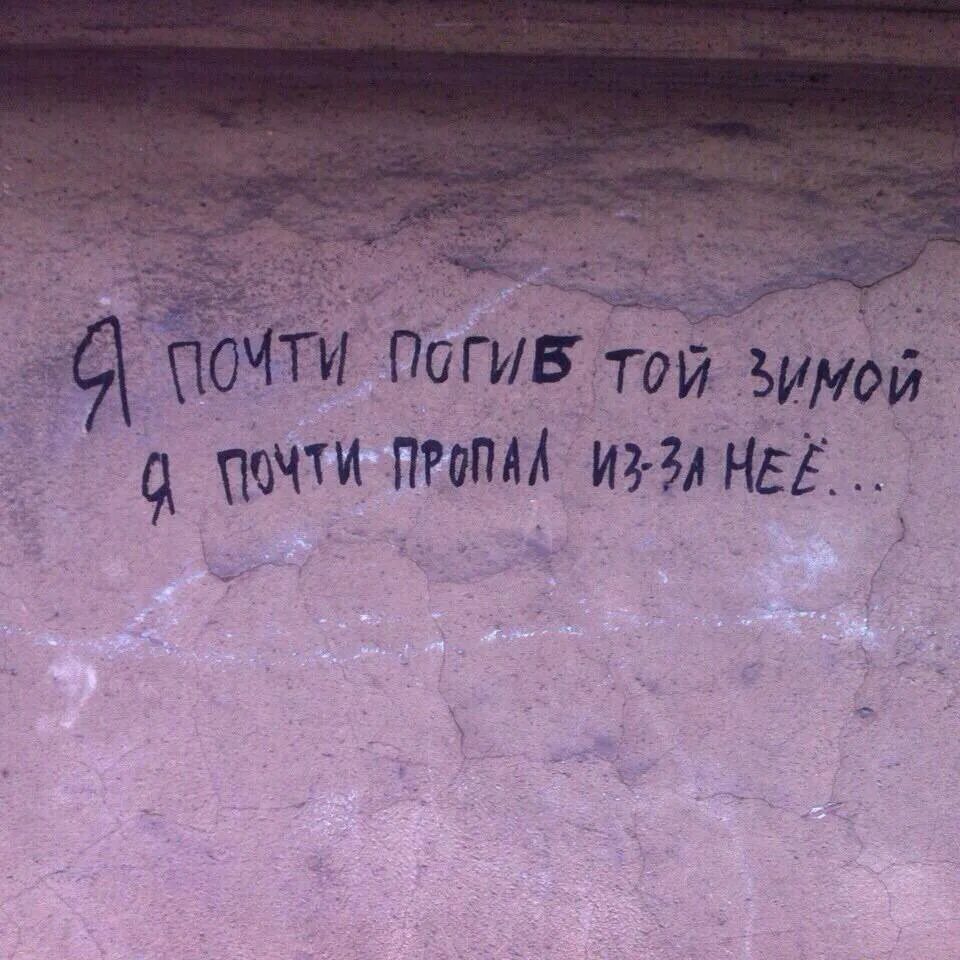 Я ПОЧТИ ПОГИБ ТОЙ ЗИМОЙ
Я ПОЧТИ ПРОПАЛ ИЗ-ЗА НЕЁ...